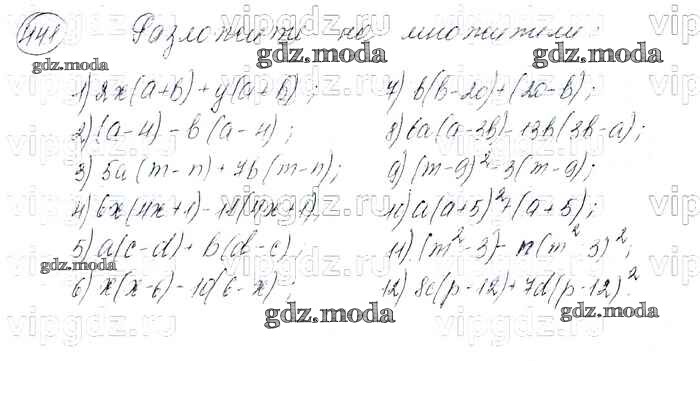 441 Разложите на множители:
1) 2x(a+b)+y(a+b);
2) (a-4)-b(a-4);
3) 5a(m-n)+7b(m-n);
4) 6x(4x+1)-11(4x+1)
5) a(c-d)+b(d-c);
6) x(x-6)-10(6-x);
7) b(b-20)+(20-b);
8) 6a(a-3b)-13b(3b-a);
9) (m-9)²-3(m-9);
10) a(a+5)²+(a+5);
11) (m²-3)-n(m²-3)²;
12) 8c(p-12)+7d(p-12)²
gdz.moda
gdz.moda
gdz.moda
gdz.moda
gdz.moda
gdz.moda
gdz.moda
vipgdz.ru